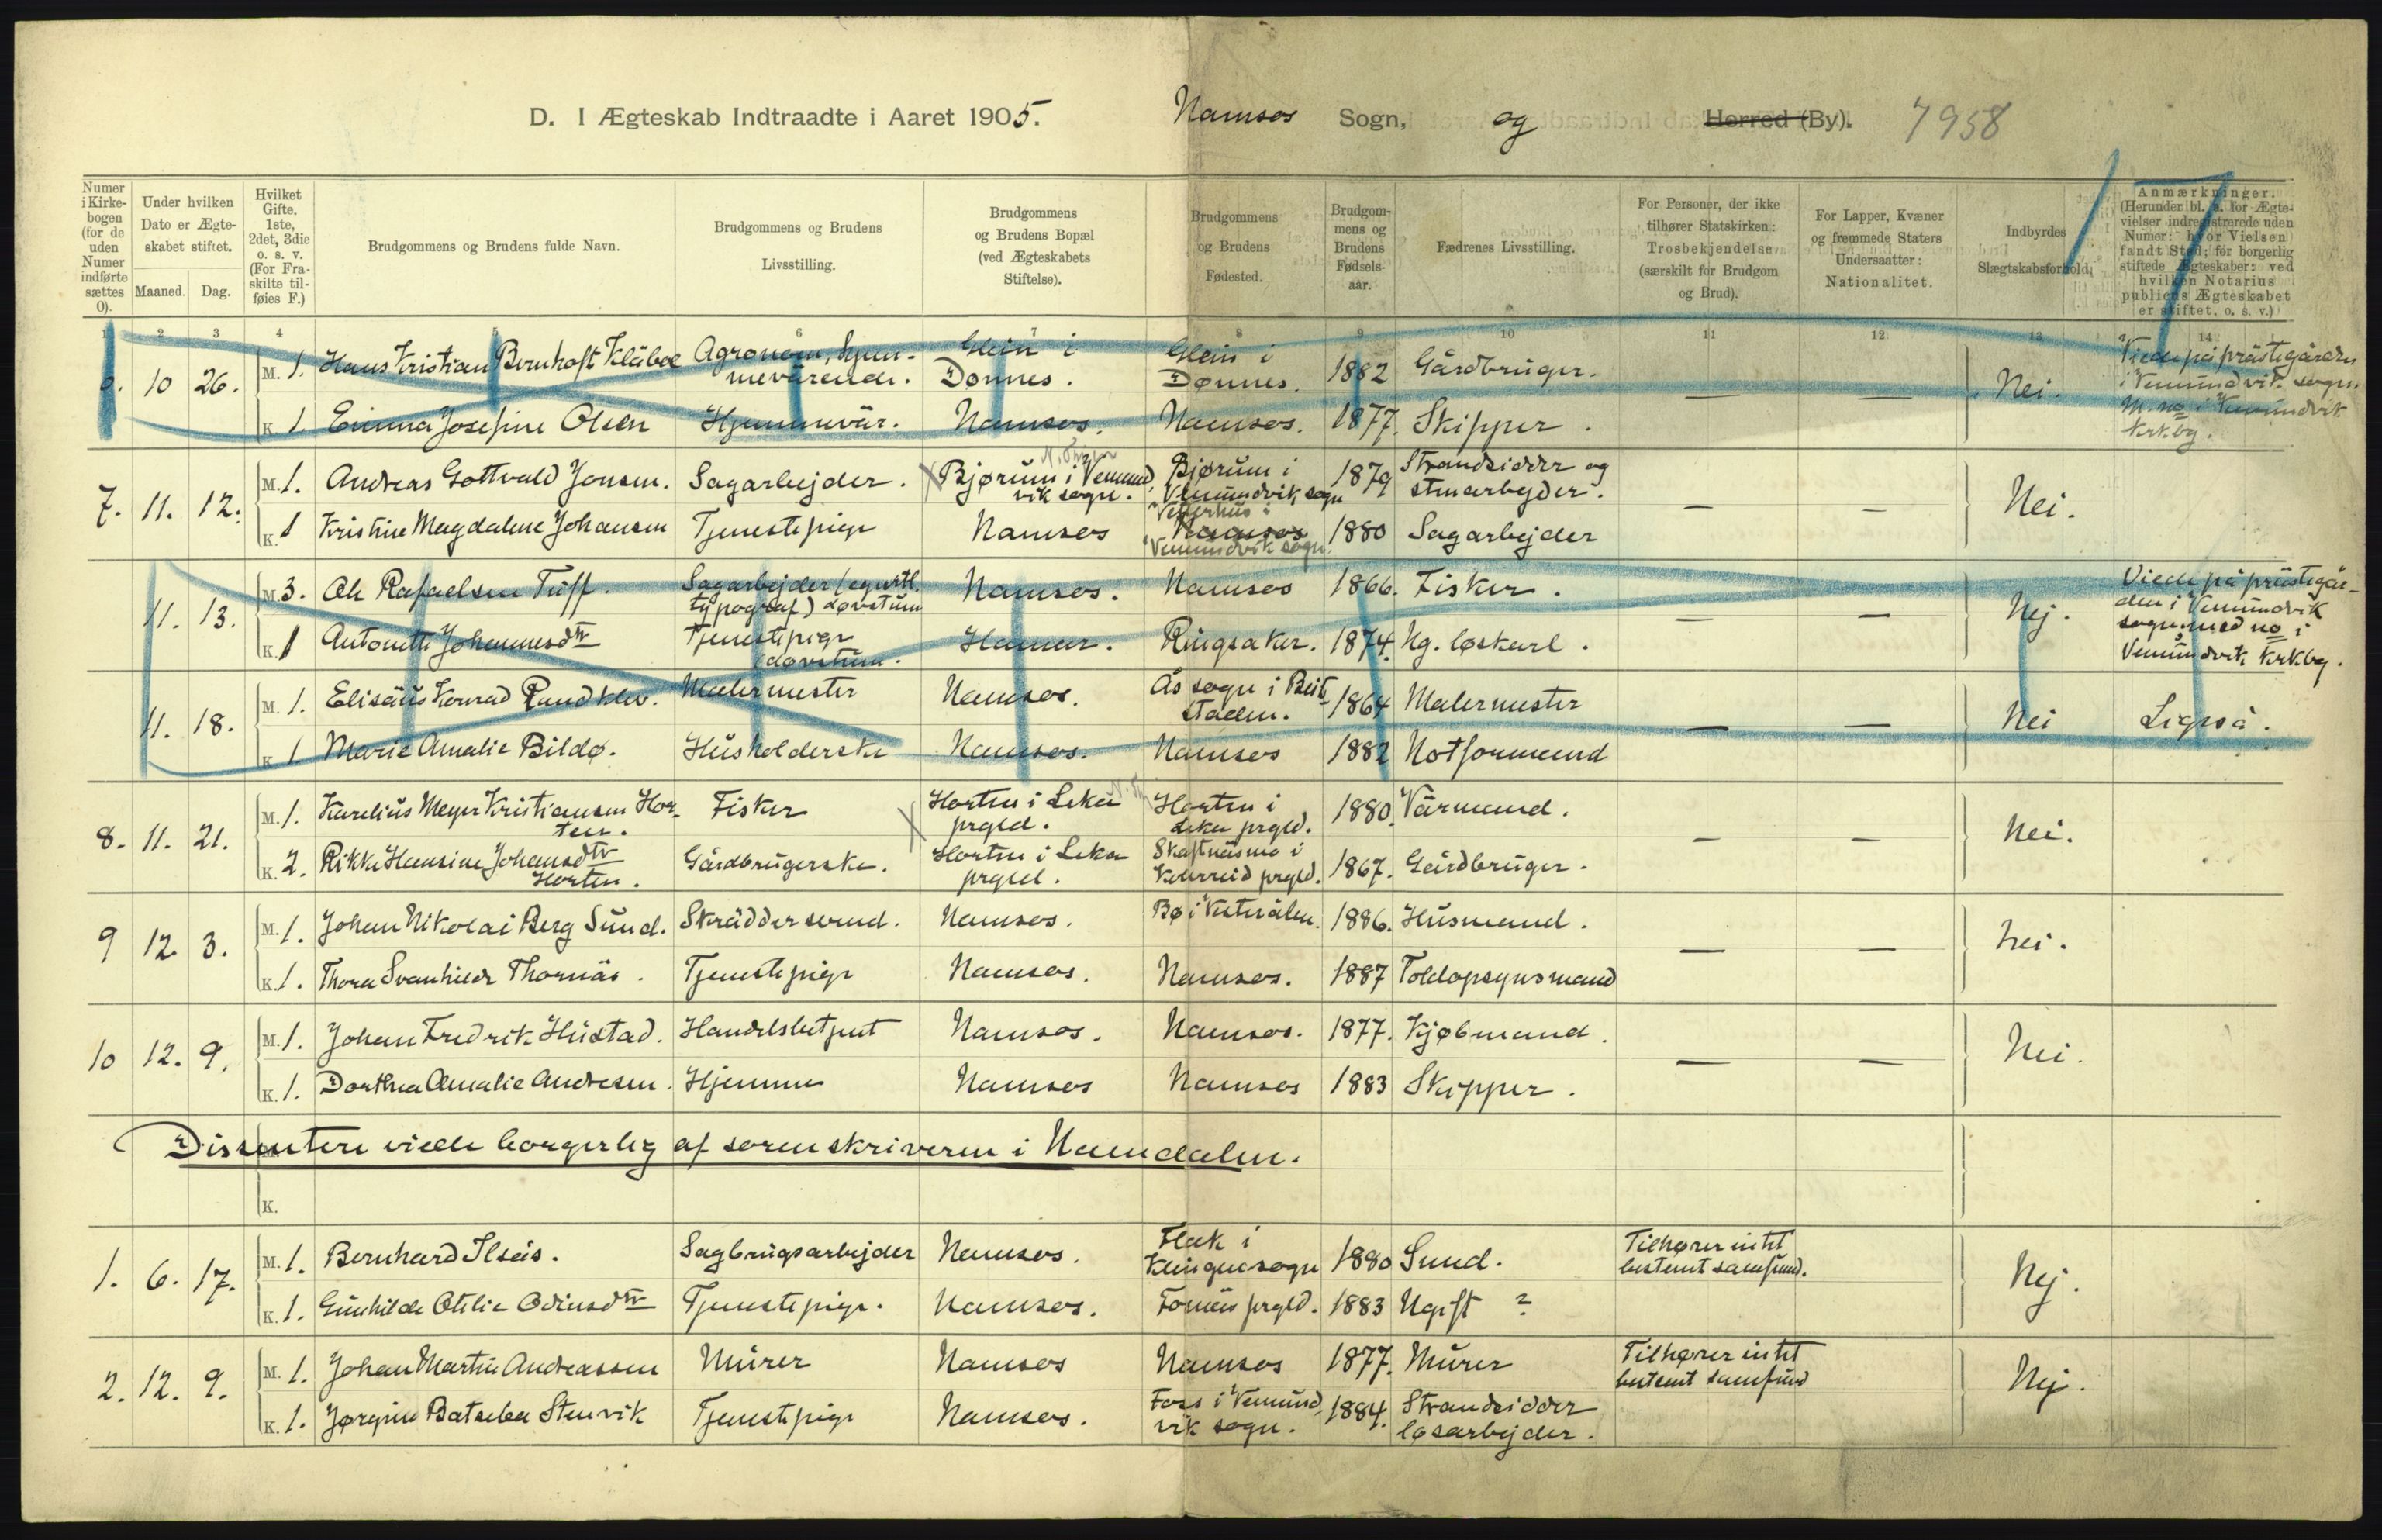 D. I Ægteskab Indtraadte i Aaret 1905. Namsos Sogn, og Herred (By). 7958
Numer i Kirkebogen (for de uden Numer indførte sættes 0).
Under hvilken Dato er Ægteskabet stiftet.
Maaned. Dag.
Hvilket Gifte. 1ste, 2det, 3die o. s. v. (For Fraskilte tilføies F.)
Brudgommens og Brudens fulde Navn.
Brudgommens og Brudens Livsstilling.
Brudgommens og Brudens Bopæl (ved Ægteskabets Stiftelse).
Brudgommens og Brudens Fødested.
Brudgommens og Brudens Fødselsaar.
Fædrenes Livsstilling.
For Personer, der ikke tilhører Statskirken: Trosbekjendelse (særskilt for Brudgom og Brud).
For Lapper, Kvæner og fremmede Staters Undersaatter: Nationalitet.
Indbyrdes Slægtskabsforhold.
Anmærkninger. (Herunder bl. a. for Ægtevielser indregistrerede uden Numer: hvor Vielsen fandt Sted; for borgerlig stiftede Ægteskaber: ved hvilken Notarius publicus Ægteskabet er stiftet. o. s. v.)
1 2 3 4 5 6 7 8 9 10 11 12 13 14
0. 10 26. M. 1. Hans Kristian Bernhoft Kläboe Agronom, hjemmeværende. Glein i Dønnes. Glein i Dønnes. 1882 Gårdbruger. — — Nei. Viede på præstegården i Vemundvik sogn. M. no i Vemundvik krkbg.
K. 1. Emma Josefine Olsen Hjemmevär. Namsos. Namsos. 1877. Skipper.
7. 11. 12. M. 1. Andreas Gottvald Jonsen. Sagarbejder. Bjørum i Vemundvik sogn. Bjørum i Vemundvik sogn 1879 Strandsidder og stenarbejder. — — Nei.
K. 1 Kristine Magdalene Johansen Tjenestepige Namsos Namsos Vemundvik sogn. 1880 Sagarbejder
11. 13. M. 3. Ole Rafaelsen Tuff. Sagarbejder (egentl. typograf) døvstum Namsos. Namsos 1866. Fisker. — — Nej. Viede på præstegården i Vemundvik sogn, med no i Vemundvik krkbg.
K. 1 Antonette Johannesdtr Tjenestepige døvstum. Hamar. Ringsaker. 1874. Ug. løskarl.
11. 18. M. 1. Elisäus Konrad Randklev. Malermester Namsos. Ås sogn i Beitstaden. 1864 Malermester — — Nei Ligeså.
K. 1. Marie Amalie Bildø. Husholderske Namsos. Namsos 1882 Notformand
8. 11. 21. M. 1. Karelius Meyer Kristiansen Horten. Fisker Horten i Leka prgld. Horten i Leka prgld. 1880. Värmand. — — Nei.
K. 2. Rikke Hansine Johansdtr Horten. Gårdbrugerske. Horten i Leka prgld. Skaftnäsmo i Kolvereid prgld. 1867. Gårdbruger.
9 12. 3. M. 1. Johan Nikolai Berg Sund. Skräddersvend. Namsos. Bø i Vesterålen. 1886. Husmand. — — Nei.
K. 1. Thora Svanhilde Thornäs. Tjenestepige Namsos. Namsos. 1887 Toldopsynsmand
10 12. 9. M. 1. Johan Fredrik Hustad. Handelsbetjent Namsos. Namsos. 1877. Kjøbmand. — — Nei.
K. 1. Dorthea Amalie Andresen. Hjemme Namsos Namsos 1883 Skipper.
Dissentere viede borgerlig af sorenskriveren i Namdalen.
K.
1. 6. 17. M. 1. Bernhard Ilsås. Sagbrugsarbejder Namsos. Flak i Klinge sogn 1880 Lund. Tilhører intet bestemt samfund. Nej.
K. 1. Gunhilde Otilie Odinsdtr Tjenestepige. Namsos. Fosnäs prgld. 1883 Ugift ?
2. 12. 9. M. 1. Johan Martin Andreassen Murer Namsos Namsos 1877. Murer Tilhører intet bestemt samfund Nej.
K. 1. Jørgine Batseba Stenvik Tjenestepige Namsos. Foss i Vemundvik sogn. 1884. Strandsidder løsarbejder.